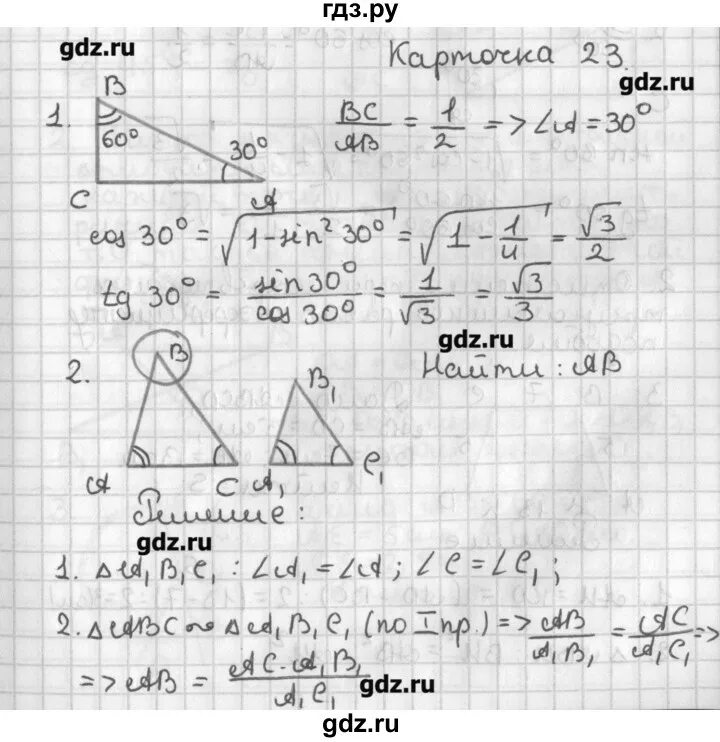 гдз.ру
gdz.ru
Карточка 23.
gdz.ru
1.
B
60°
30°
C
A
BC/AB = 1/2 => ∠A = 30°
cos 30° = √(1 - sin² 30°) = √(1 - 1/4) = √3/2
tg 30° = sin 30°/cos 30° = 1/√3 = √3/3
gdz.ru
2.
B
A
C
B₁
A₁
C₁
Найти: AB
Решение:
gdz.ru
1. △A₁B₁C₁ : ∠A₁ = ∠A; ∠C = ∠C₁;
2. △ABC ∾ △A₁B₁C₁ (по I пр.) => AB/A₁B₁ = AC/A₁C₁ =>
=> AB = AC·A₁B₁/A₁C₁
gdz.ru
gdz.ru